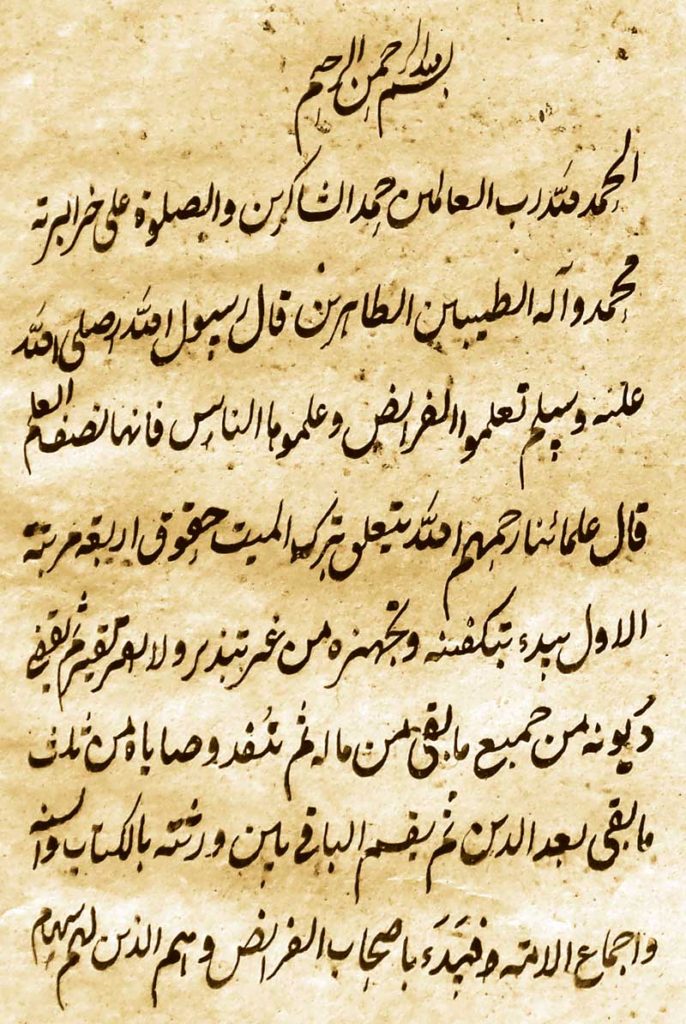 بسم الله الرحمن الرحيم
الحمد لله رب العالمين حمد الشاكرين والصلوة على خير البرية
محمد وآله الطيبين الطاهرين قال رسول الله صلى الله
عليه وسلم تعلموا الفرائض وعلموها الناس فانها نصف العلم
قال علمائنا رحمهم الله يتعلق بتركة الميت حقوق اربعة مرتبة
الاول يبدء بتكفينه وتجهيزه من غير تبذير ولا تقتير ثم يقضى
ديونه من جميع ما بقى من ماله ثم تنفد وصاياه من ثلث
ما بقى بعد الدين ثم يقسم الباقى بين ورثته بالكتاب والسنة
واجماع الامة فيبدء باصحاب الفرائض وهم الذين لهم سهام